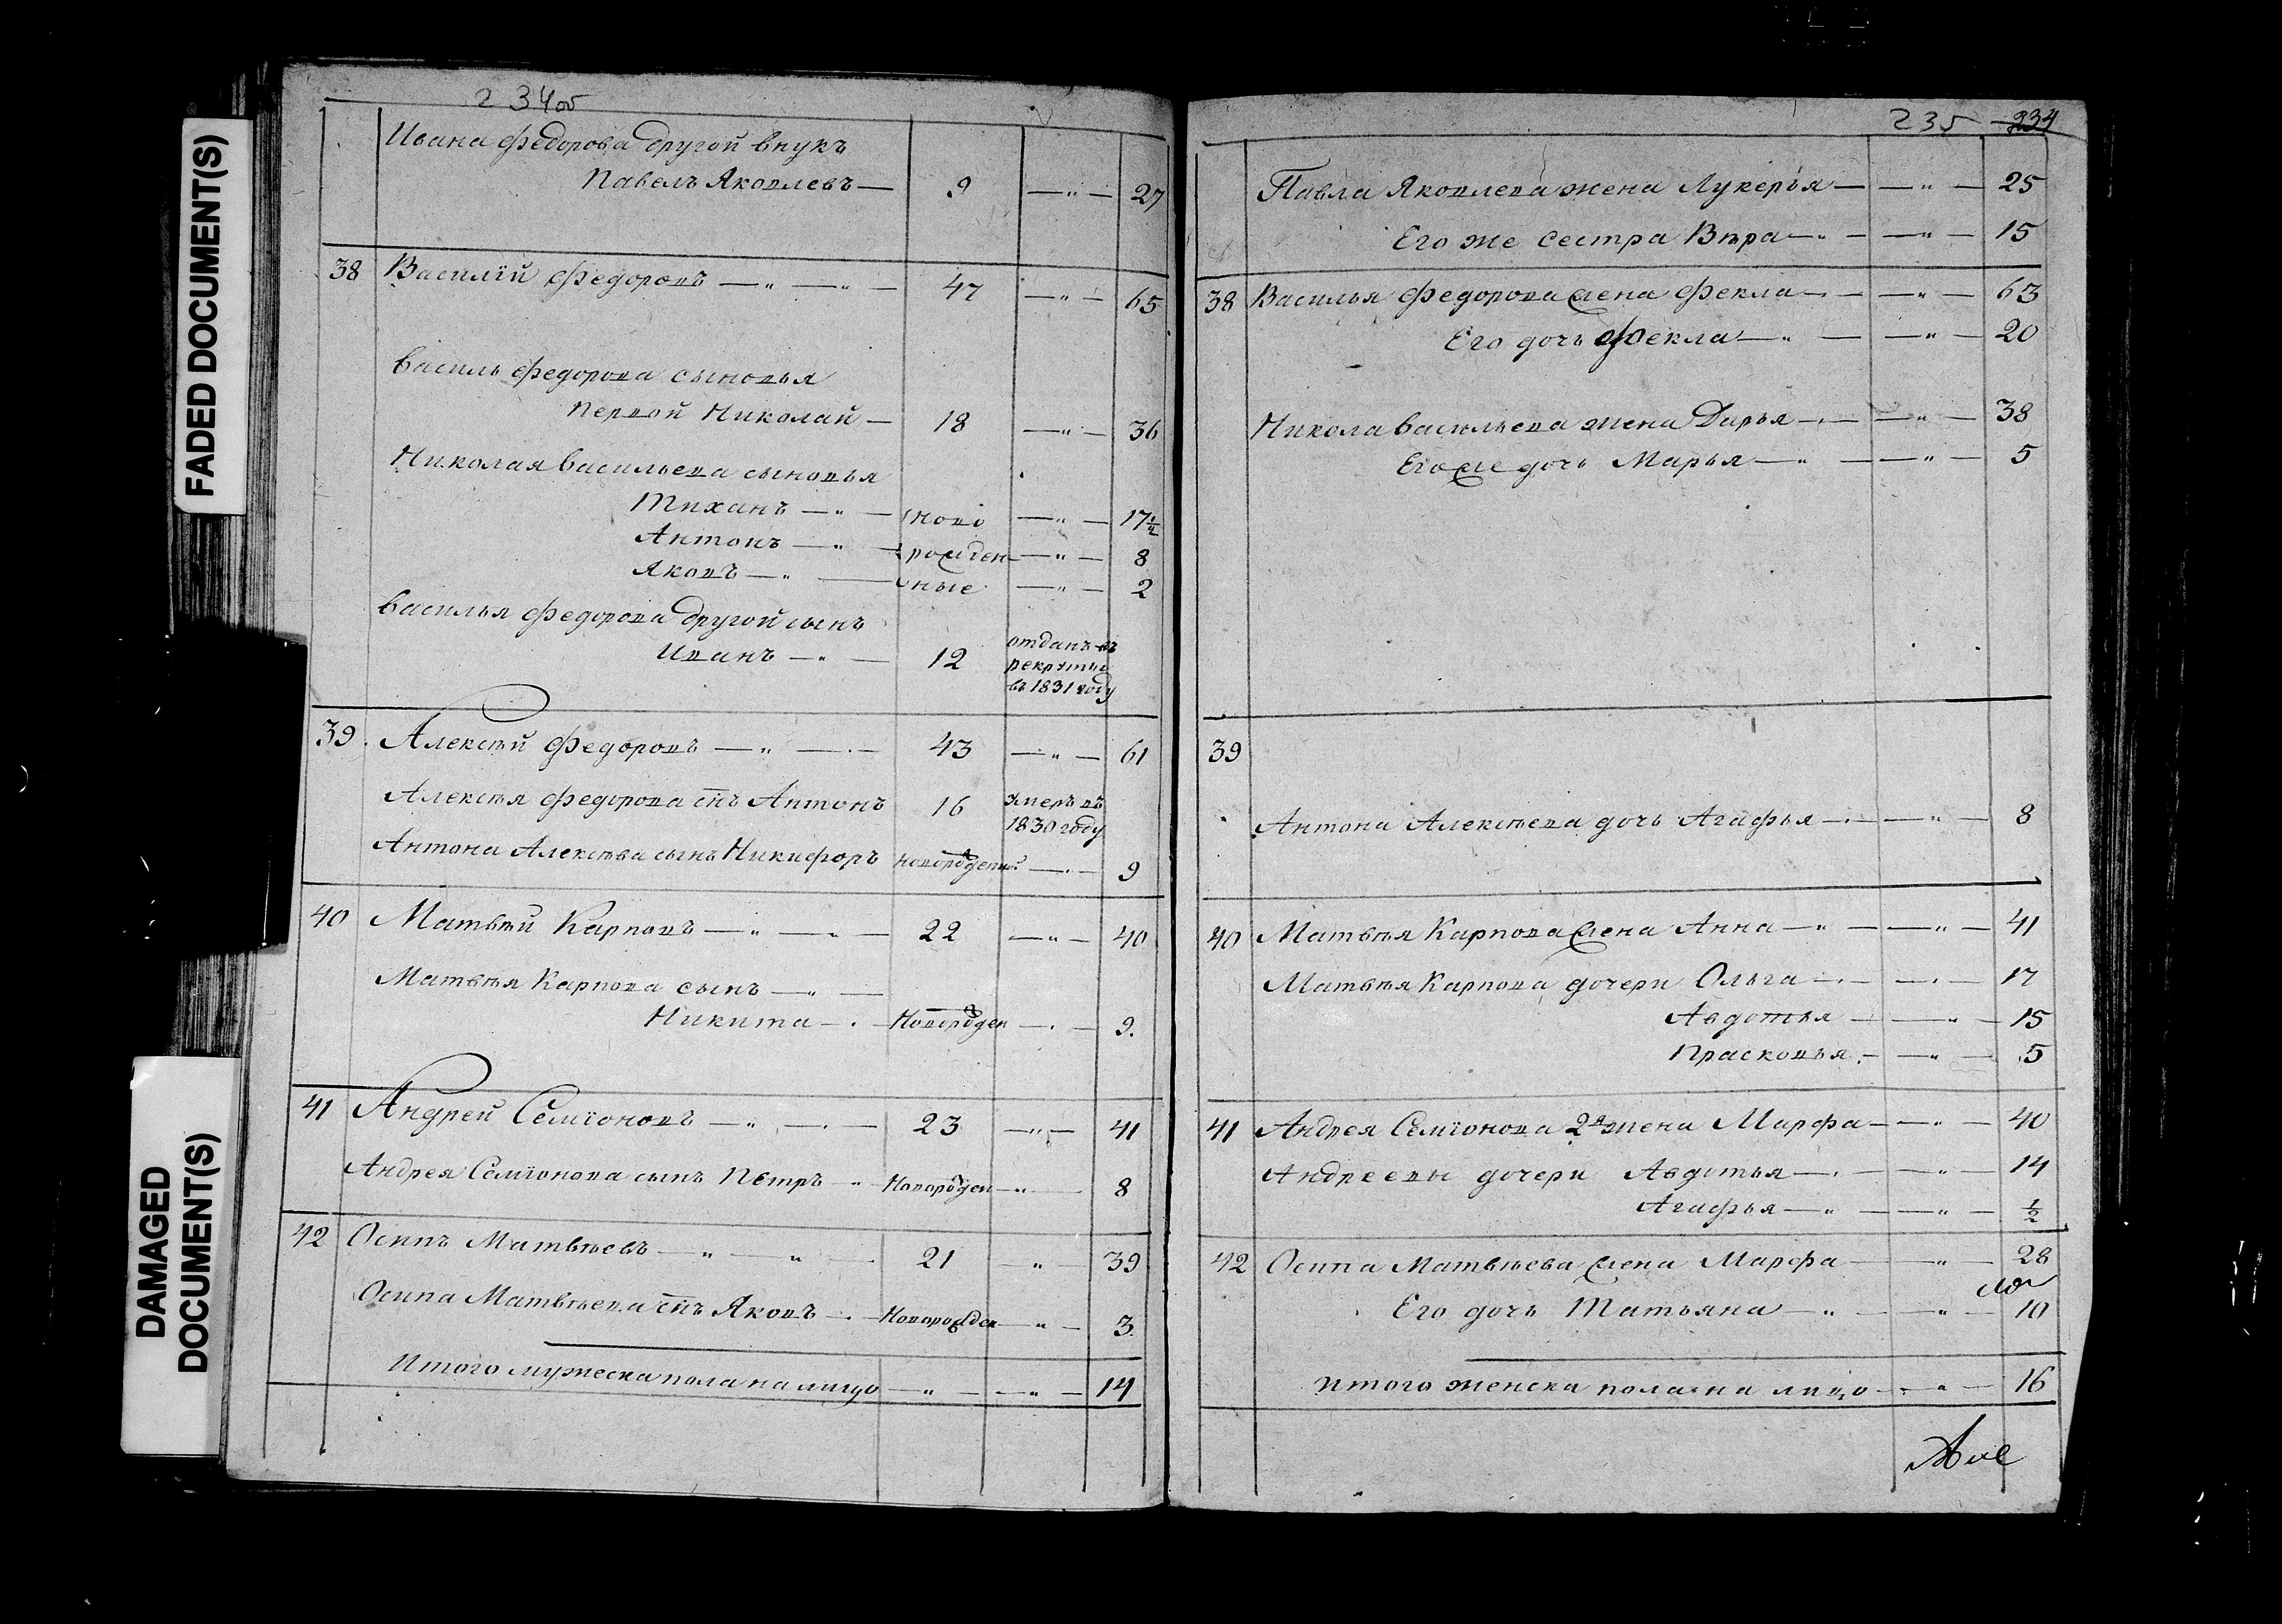 FADED DOCUMENT(S)
DAMAGED DOCUMENT(S)
234об
Ивана Федорова другой внукъ
Павелъ Яковлевъ — 9 — " — 27
38 Василій Федоровъ — " — " — 47 — " — 65
Василь Федорова сыновья
первой Николай — 18 — " — 36
Николая Васильева сыновья
Тиханъ — " — ново — " — 17½
Антонъ — " — рожден — " — 8
Яковъ — " — ные — " — 2
Василья Федорова другой сынъ
Иванъ — " — 12 отданъ въ
рекруты
въ 1831 году
39. Алексѣй Федоровъ — " — . — 43 — " — 61
Алексѣя Федорова снъ Антонъ 16 умеръ въ
1830 году
Антона Алексѣва сынъ Никифоръ новорожденной — . — 9
40 Матвѣй Карповъ — " — " — 22 — " — 40
Матвѣя Карпова сынъ — " —
Никита — . — Новорожден — . — 9.
41 Андрей Семіоновъ — " — . — 23 — " — 41
Андрея Семіонова сынъ Петръ — " Новорожден — " — 8
42 Осипъ Матвѣевъ — " — " — . 21 — " — 39
Осипа Матвѣева снъ Яковъ — . — Новорожден — " — 3.
Итого мужеска пола на лицо — " — — " — 14
235 234
Павла Яковлева жена Лукерья — — " — 25
Его же сестра Вѣра — " — — " — 15
38 Василья Федорова жена Фекла — . — — " — 63
Его дочь Фекла — " — — " — 20
Никола Васильева жена Дарья — . — — " — 38
Его же дочь Марья — " — — " — 5
39
Антона Алексѣева дочь Агафья — . — — " — 8
40 Матвѣя Карпова жена Анна — " — — " — 41
Матвѣя Карпова дочери Ольга — . — — . — 17
Авдотья — — " — 15
Прасковья. — — " — 5
41 Андрея Семіонова 2я жена Марфа — — " — 40
Андреевы дочери Авдотья — . — — " — 14
Агафья — " — — " — ½
42 Осипа Матвѣева жена Марфа — — " — 28
Его дочь Татьяна — " — — " — 10
итого женска пола на лицо — . — " — 16